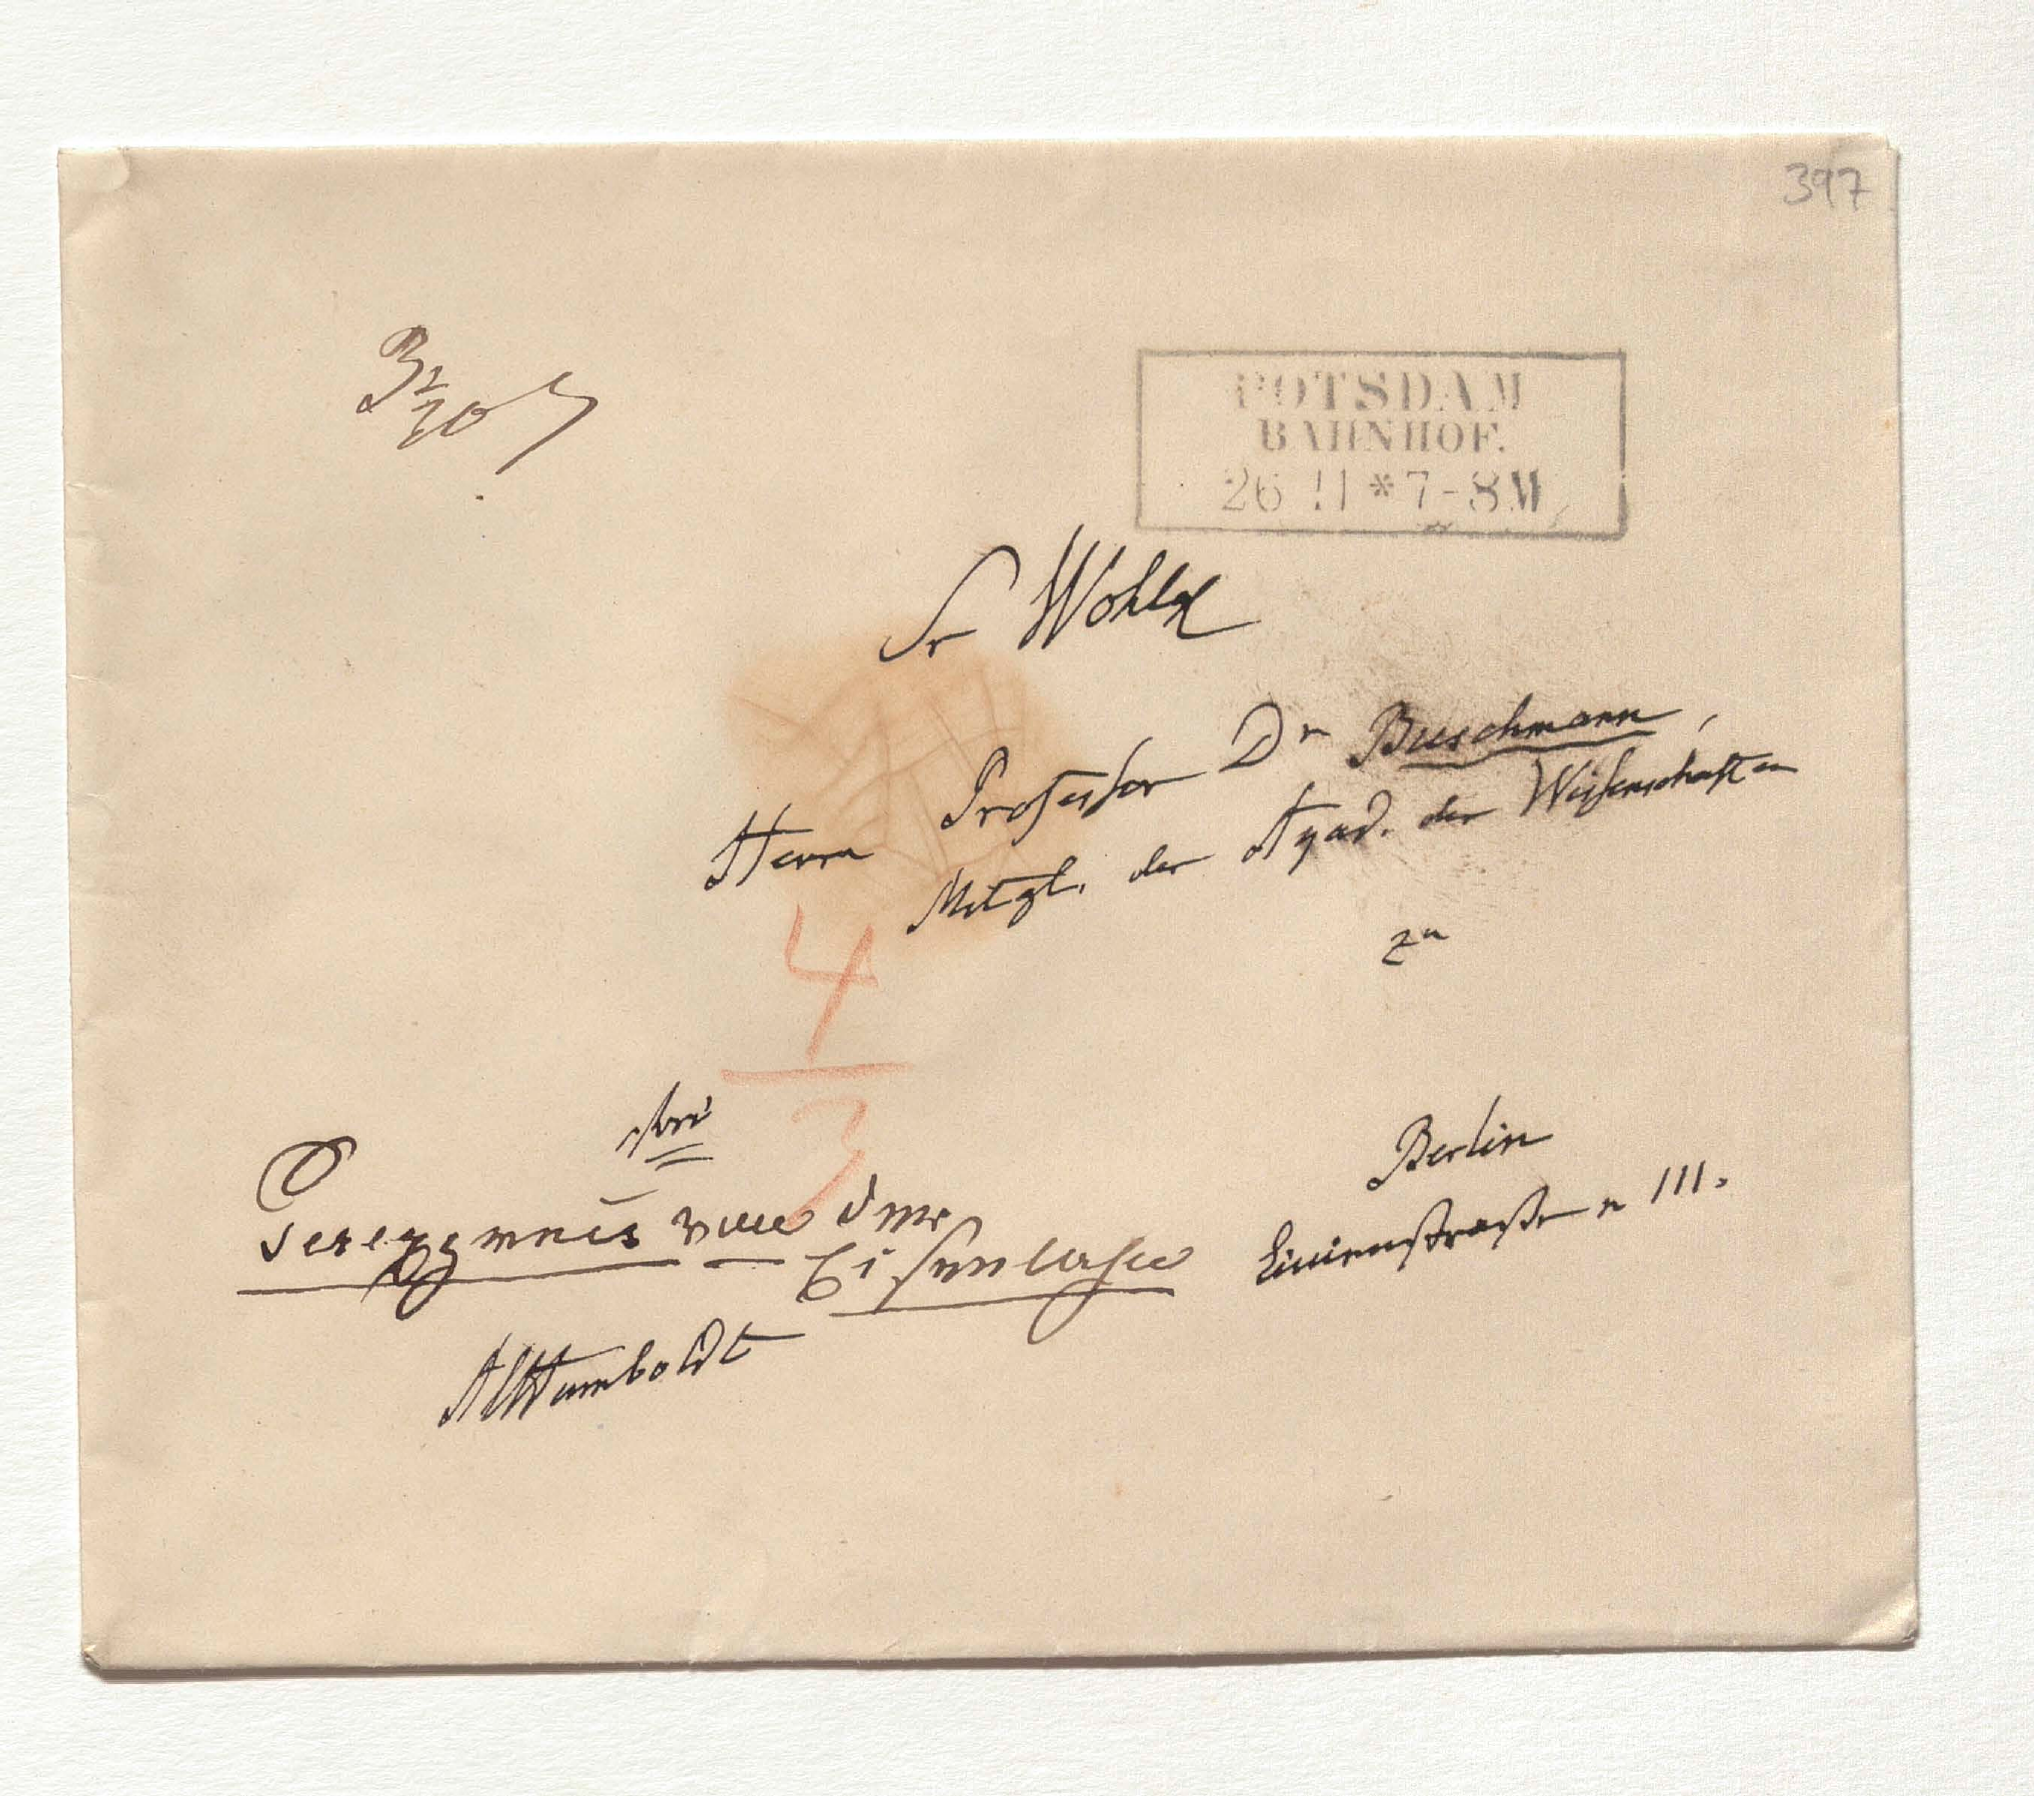 397
POTSDAM
BAHNHOF.
26 11 * 7-8 M
Sr Wohlg
Herrn Professor Dr Buschmann,
Mitgl. der Akad. der Wissenschaften
zu
4
3
frei
Berlin
Linienstraße n 111.
von der
Eisenbahn
AlHumboldt